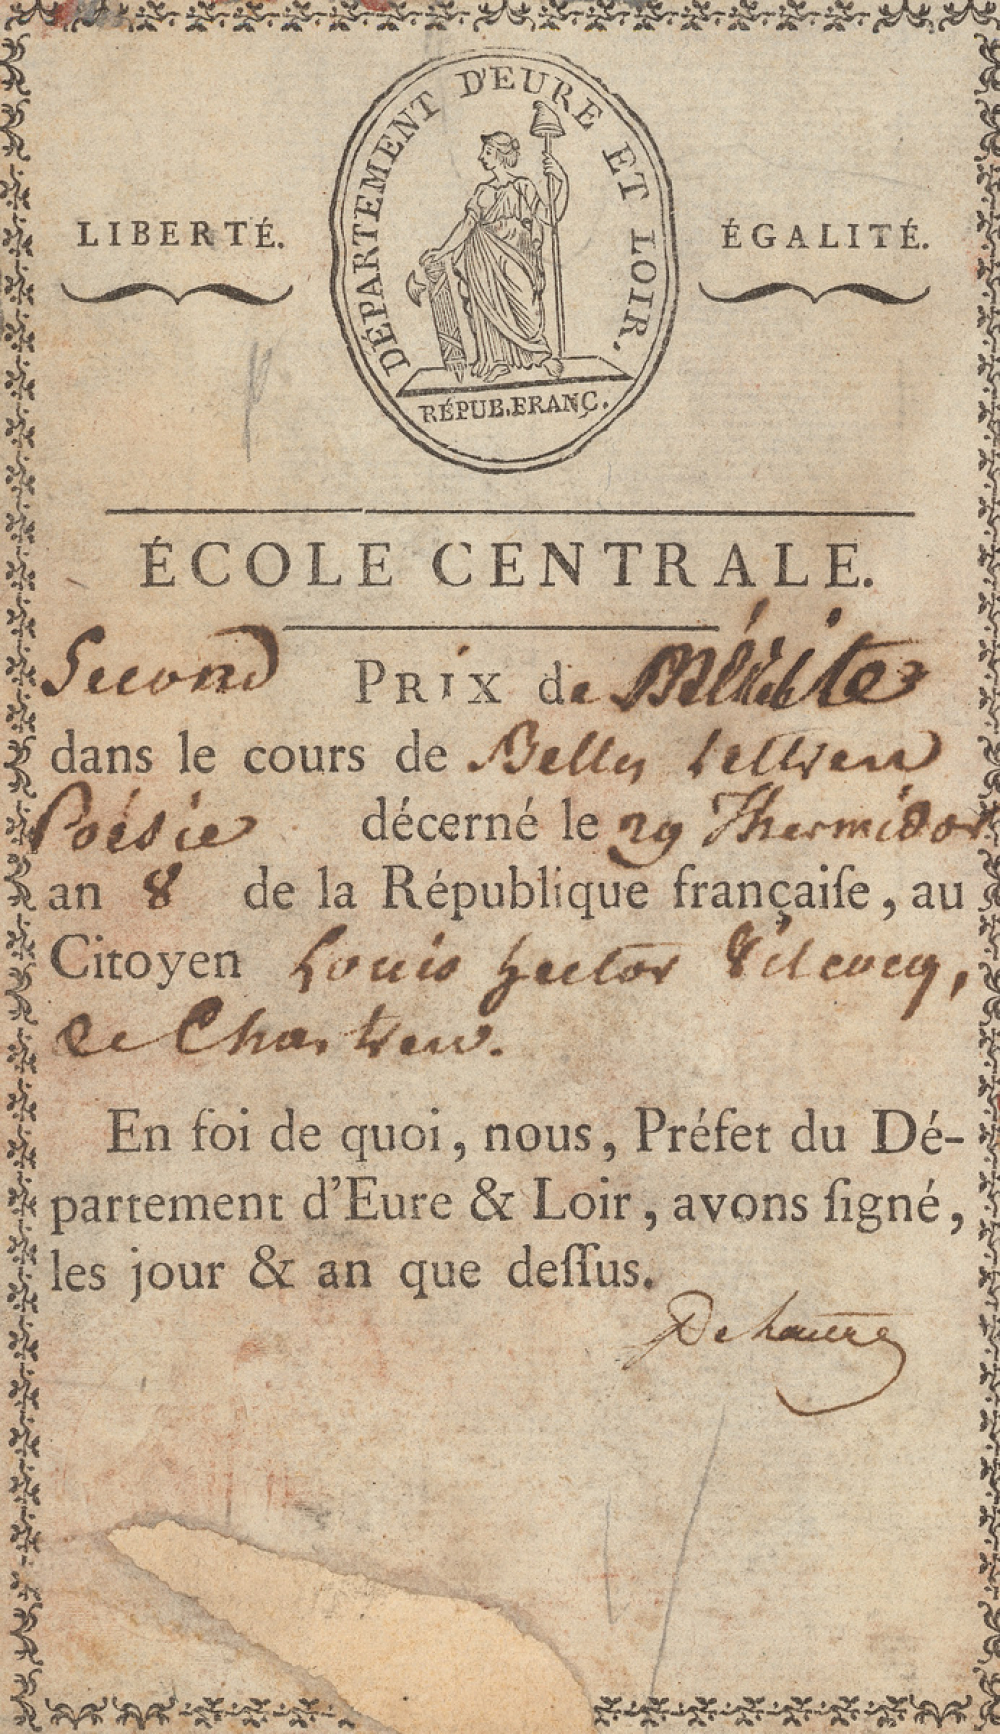 DÉPARTEMENT D'EURE ET LOIR.
LIBERTÉ. ÉGALITÉ.
RÉPUB. FRANÇ.
ÉCOLE CENTRALE.
Second PRIX de Mérite
dans le cours de Belles lettres
Poésie décerné le 29 Thermidor
an 8 de la République françaiſe, au
Citoyen Louis hector
de Chartres.
En foi de quoi, nous, Préfet du Dé-
partement d'Eure & Loir, avons ſigné,
les jour & an que deſſus.